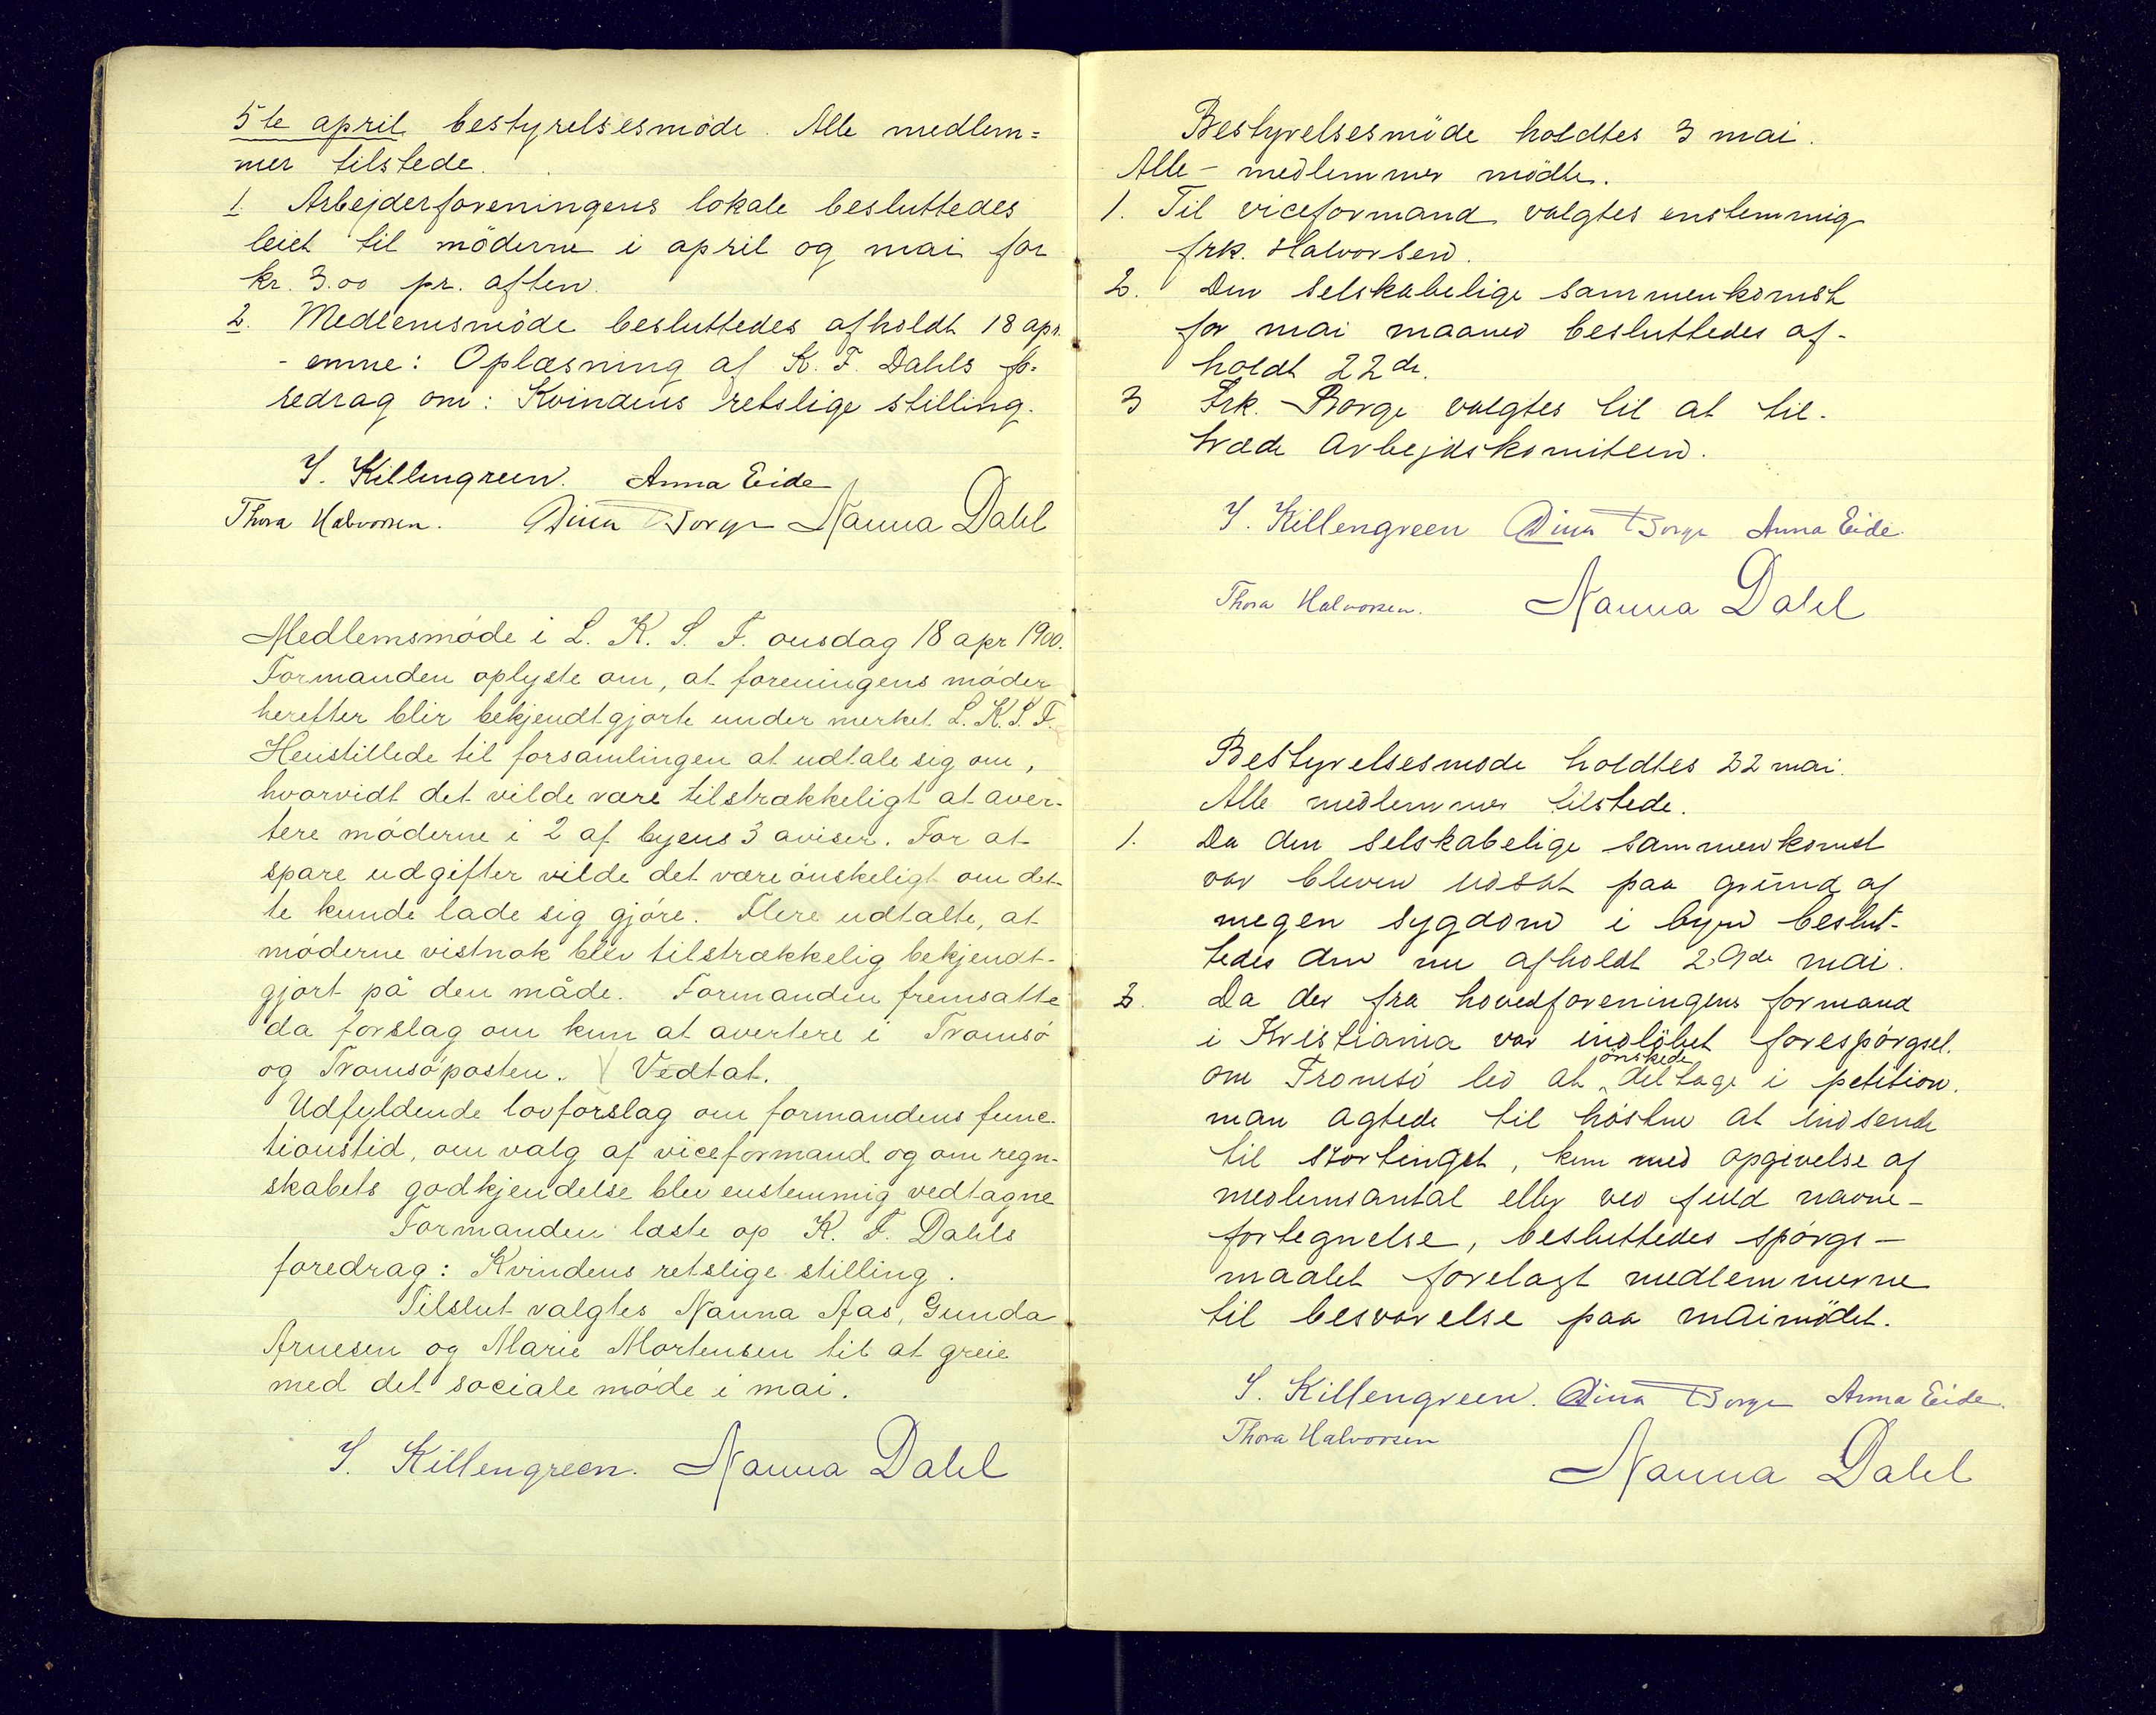 5te april bestyrelsesmøde. Alle medlem=
mer tilstede.
1. Arbejderforeningens lokale besluttedes
leiet til möderne i april og mai for
kr. 3.00 pr. aften.
2. Medlemsmöde besluttedes afholdt 18 apr.
- emne: Oplæsning af K. F. Dahls fo-
redrag om: Kvindens retslige stilling.
S. Killengreen. Anna Eide
Thora Halvorsen. Dina Borge Nanna Dahl
Medlemsmóde i L. K. S. F. onsdag 18 apr 1900.
Formanden oplyste om, at foreningens móder
herefter blir bekjendtgjorte under merket L. K. S. F.
Henstillede til forsamlingen at udtale sig om,
hvorvidt det vilde være tilstrækkeligt at aver-
tere móderne i 2 af byens 3 aviser. For at
spare udgifter vilde det være ónskeligt om det-
te kunde lade sig gjóre. Flere udtalte, at
móderne vistnok blev tilstrækkelig bekjendt-
gjort på den måde. Formanden fremsatte
da forslag om kun at avertere i Tromsó
og Tromsóposten. Vedtat.
Udfyldende lovforslag om formandens func-
tionstid, om valg af viceformand og om regn-
skabets godkjendelse blev enstemmig vedtagne
Formanden læste op K. F. Dahls
foredrag: Kvindens retslige stilling.
Tilslut valgtes Nanna Aas, Gunda
Arnesen og Marie Mortensen til at greie
med det sociale móde i mai.
S. Killengreen. Nanna Dahl
Bestyrelsesmöde holdtes 3 mai.
Alle - medlemmer mödte.
1. Til viceformand valgtes enstemmig
frk. Halvorsen.
2. Den selskabelige sammenkomst
for mai maaned besluttedes af-
holdt 22de.
3 Frk. Borge valgtes til at til-
træde Arbejdskomiteen.
S. Killengreen Dina Borge Anna Eide.
Thora Halvorsen. Nanna Dahl
Bestyrelsesmøde holdtes 22 mai.
Alle medlemmer tilstede.
1. Da den selskabelige sammenkomst
var bleven udsat paa grund af
megen sygdom i byen beslut-
tedes den nu afholdt 29de mai.
2. Da der fra hovedforeningens formand
i Kristiania var indlöbet forespørgsel.
om Tromsö led at ønskede deltage i petition.
man agtede til hösten at indsende
til stortinget, kun med opgivelse af
medlemsantal eller ved fuld navne-
fortegnelse, besluttedes spörgs-
maalet forelagt medlemmerne
til besvarelse paa maimödet.
S. Killengreen. Dina Borge Anna Eide.
Thora Halvorsen
Nanna Dahl